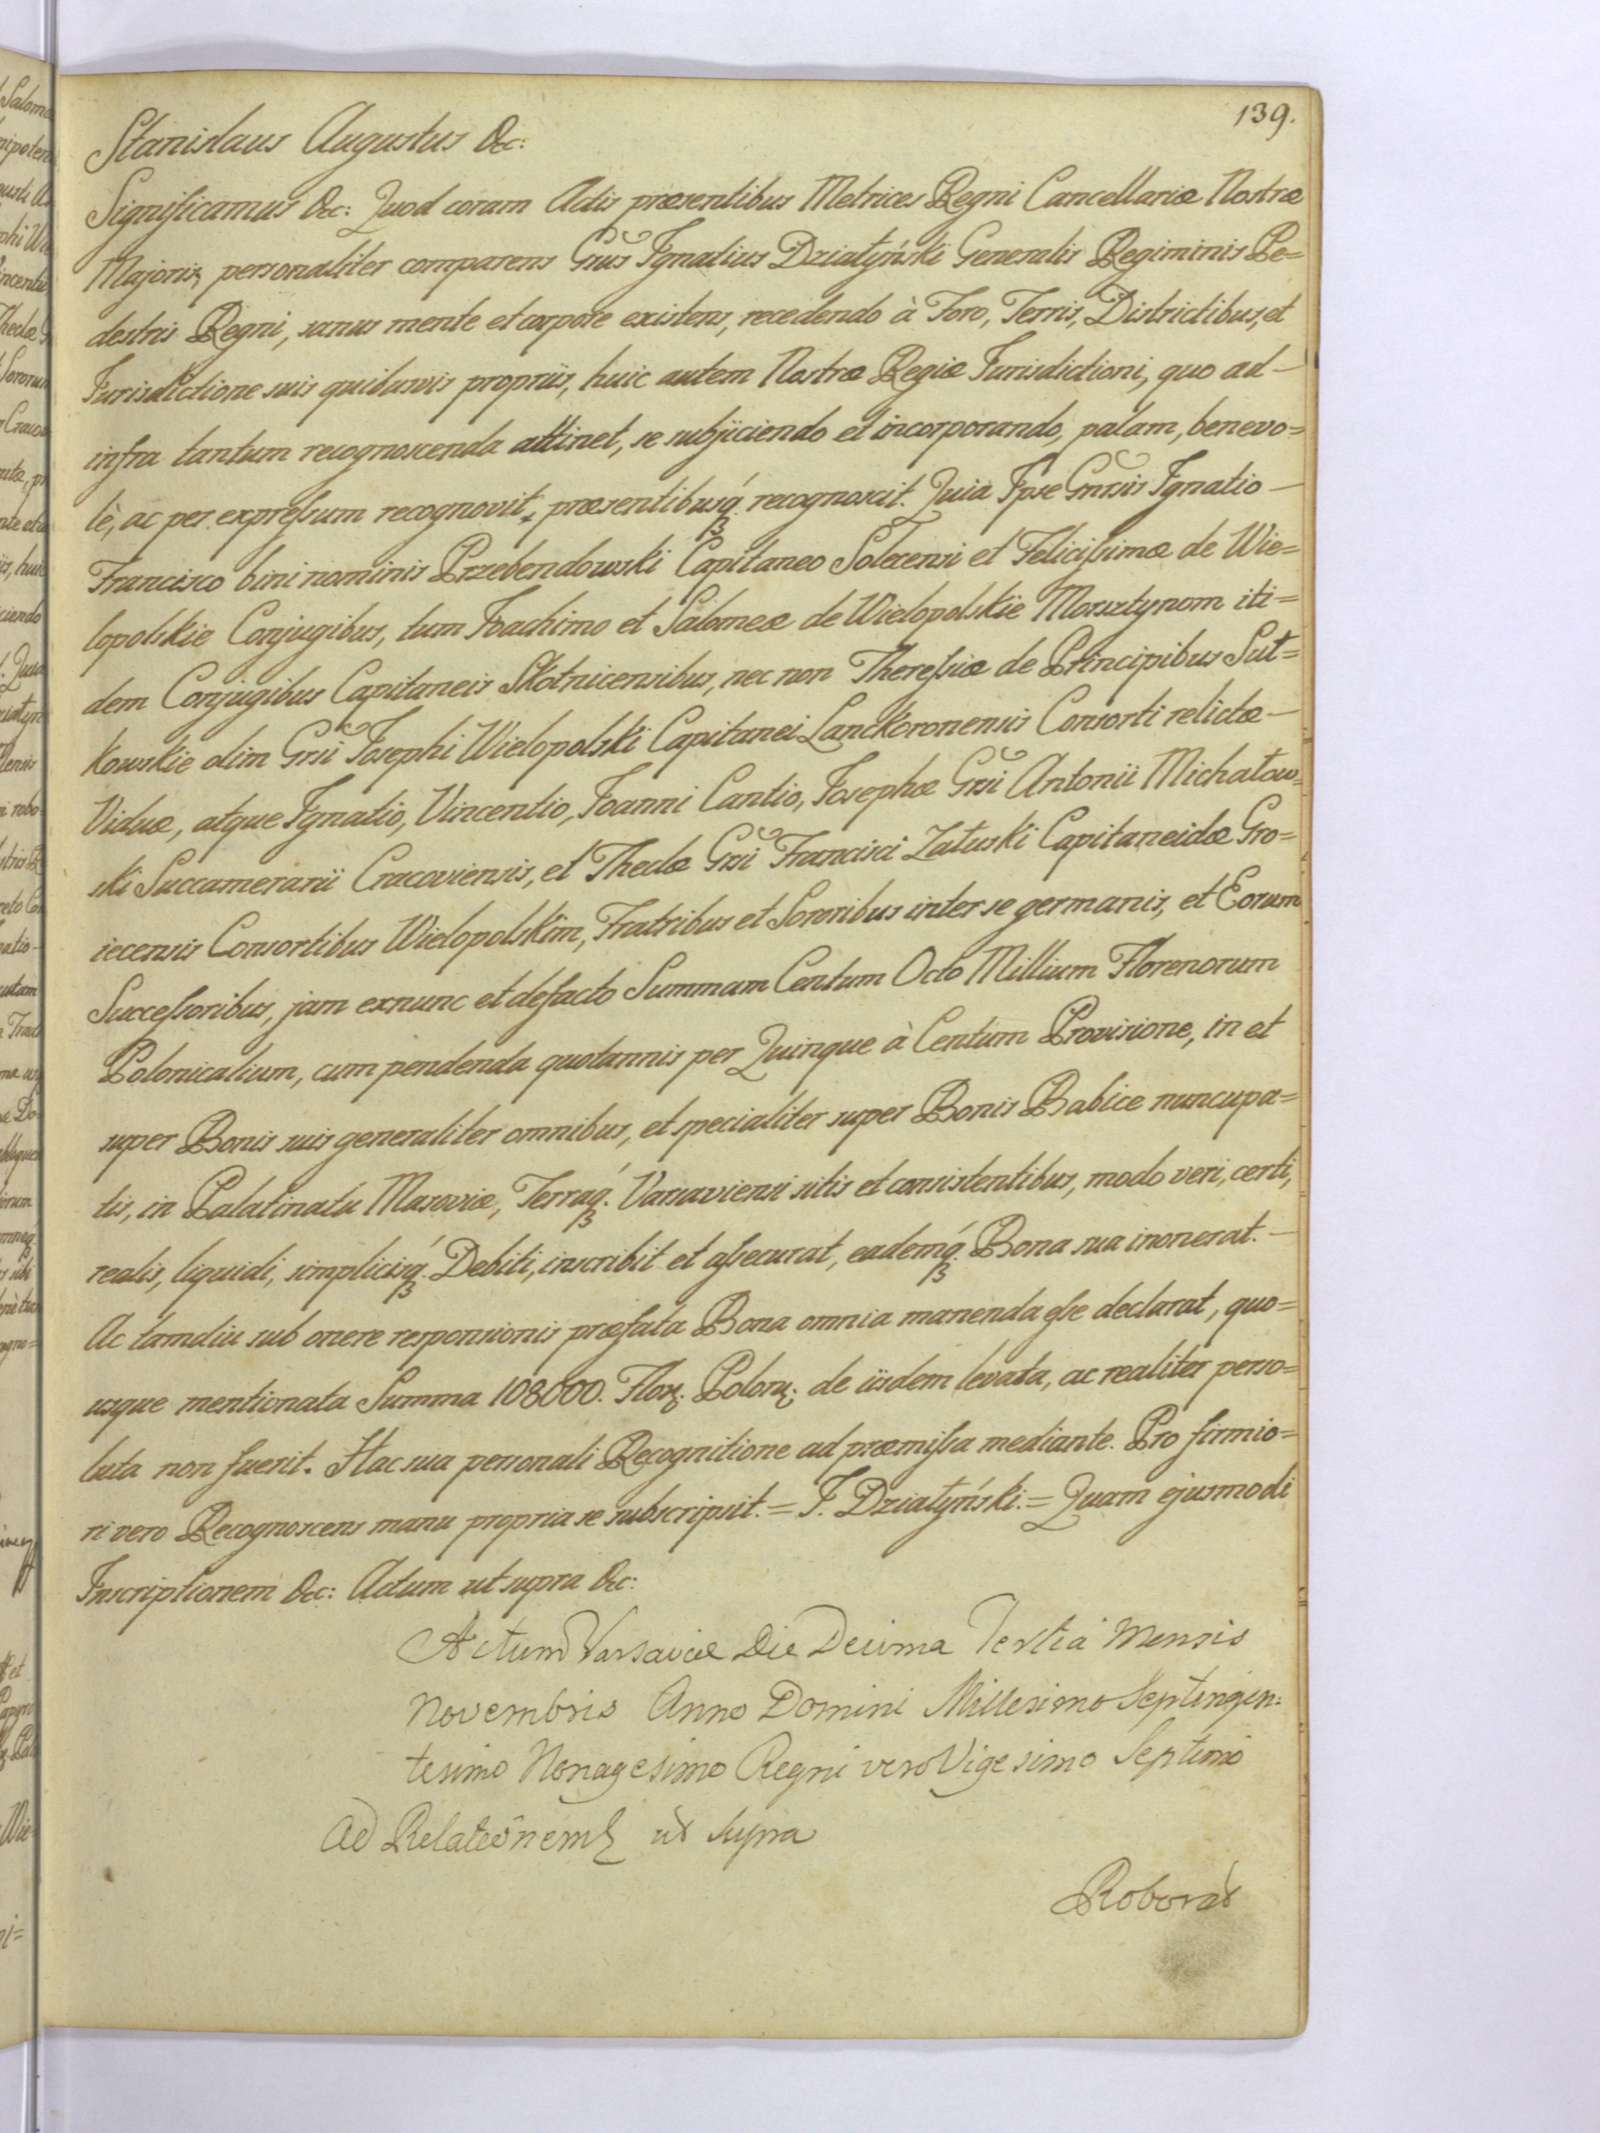 139.
Stanislaus Augustus &c:
Significamus &c: Quod coram Actis præsentibus Metrices Regni Cancellariæ Nostræ
Majoris, personaliter comparens Grūs Ignatius Działyński Generalis Regiminis Pe=
destris Regni, sanus mente et corpore existens, recedendo à Foro, Terris, Districtibus, et
Jurisdictione suis quibusvis propriis, huic autem Nostræ Regiæ Jurisdictioni, quo ad—
infra tantum recognoscenda attinet, se subjiciendo et incorporando, palam, benevo=
lè, ac per expressum recognovit, præsentibusq́ recognoscit. Quia Ipse Gnrsis Ignatio—
Francisco bini nominis Przebendowski Capitaneo Solecensi et Felicissimæ de Wie=
lopolskie Conjugibus, tum Joachimo et Salomeæ de Wielopolskie Morsztynom iti=
dem Conjugibus Capitaneis Skotnicensibus, nec non Theressiæ de Principibus Sut=
kowskie olim Grsi Josephi Wielopolski Capitanei Lanckoronensis Consorti relictæ—
Viduæ, atque Ignatio, Vincentio, Joanni Cantio, Josephæ Grsi Antonii Michałow=
ski Succamerarii Cracoviensis, et Theclæ Grsi Francisci Załuski Capitaneidæ Gro=
iecensis Consortibus Wielopolskim, Fratribus et Sororibus inter se germanis, et Eorum
Successoribus, jam exnunc et defacto Summam Centum Octo Millium Florenorum
Polonicalium, cum pendenda quotannis per Quinque à Centum Provisione, in et
super Bonis suis generaliter omnibus, et specialiter super Bonis Babice nuncupa=
tis, in Palatinatu Masoviæ, Terraq́. Varsaviensi sitis et consistentibus, modo veri, certi,
realis, liquidi, simplicisq́. Debiti, inscribit et assecurat, eademq́. Bona sua inonerat.—
Ac tamdiu sub onere responsionis præfata Bona omnia manenda esse declarat, quo=
usque mentionata Summa 108000. Flor. Polon. de iisdem levata, ac realiter perso=
luta non fuerit. Hac sua personali Recognitione ad præmissa mediante. Pro firmio=
ri vero Recognoscens manu propria se subscripsit. = I. Działyński. = Quam ejusmodi
Inscriptionem &c: Actum ut supra &c:
Actum Varsaviæ Die Decima Tertia Mensis
Novembris Anno Domini Millesimo Septingen:
tesimo Nonagesimo Regni vero Vigesimo Septimo
Ad Relationem ut Supra
Roborat